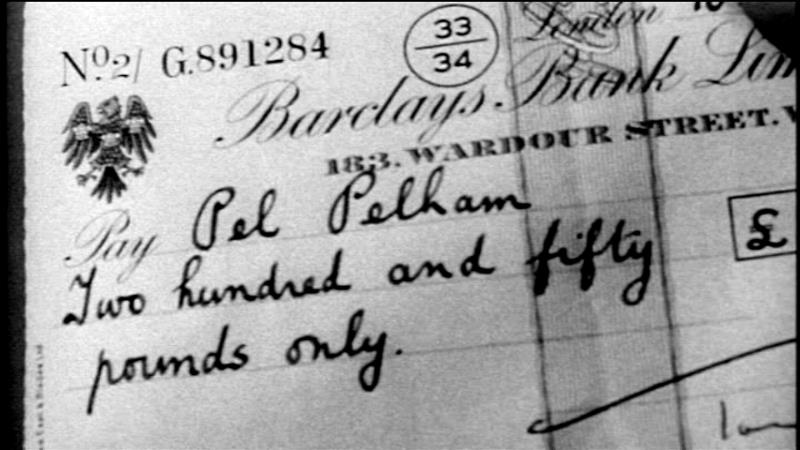 London
33
34
No. 2/ G.891284
Barclays Bank
183. WARDOUR STREET.
Pay Pel Pelham
Two hundred and fifty
£
pounds only.